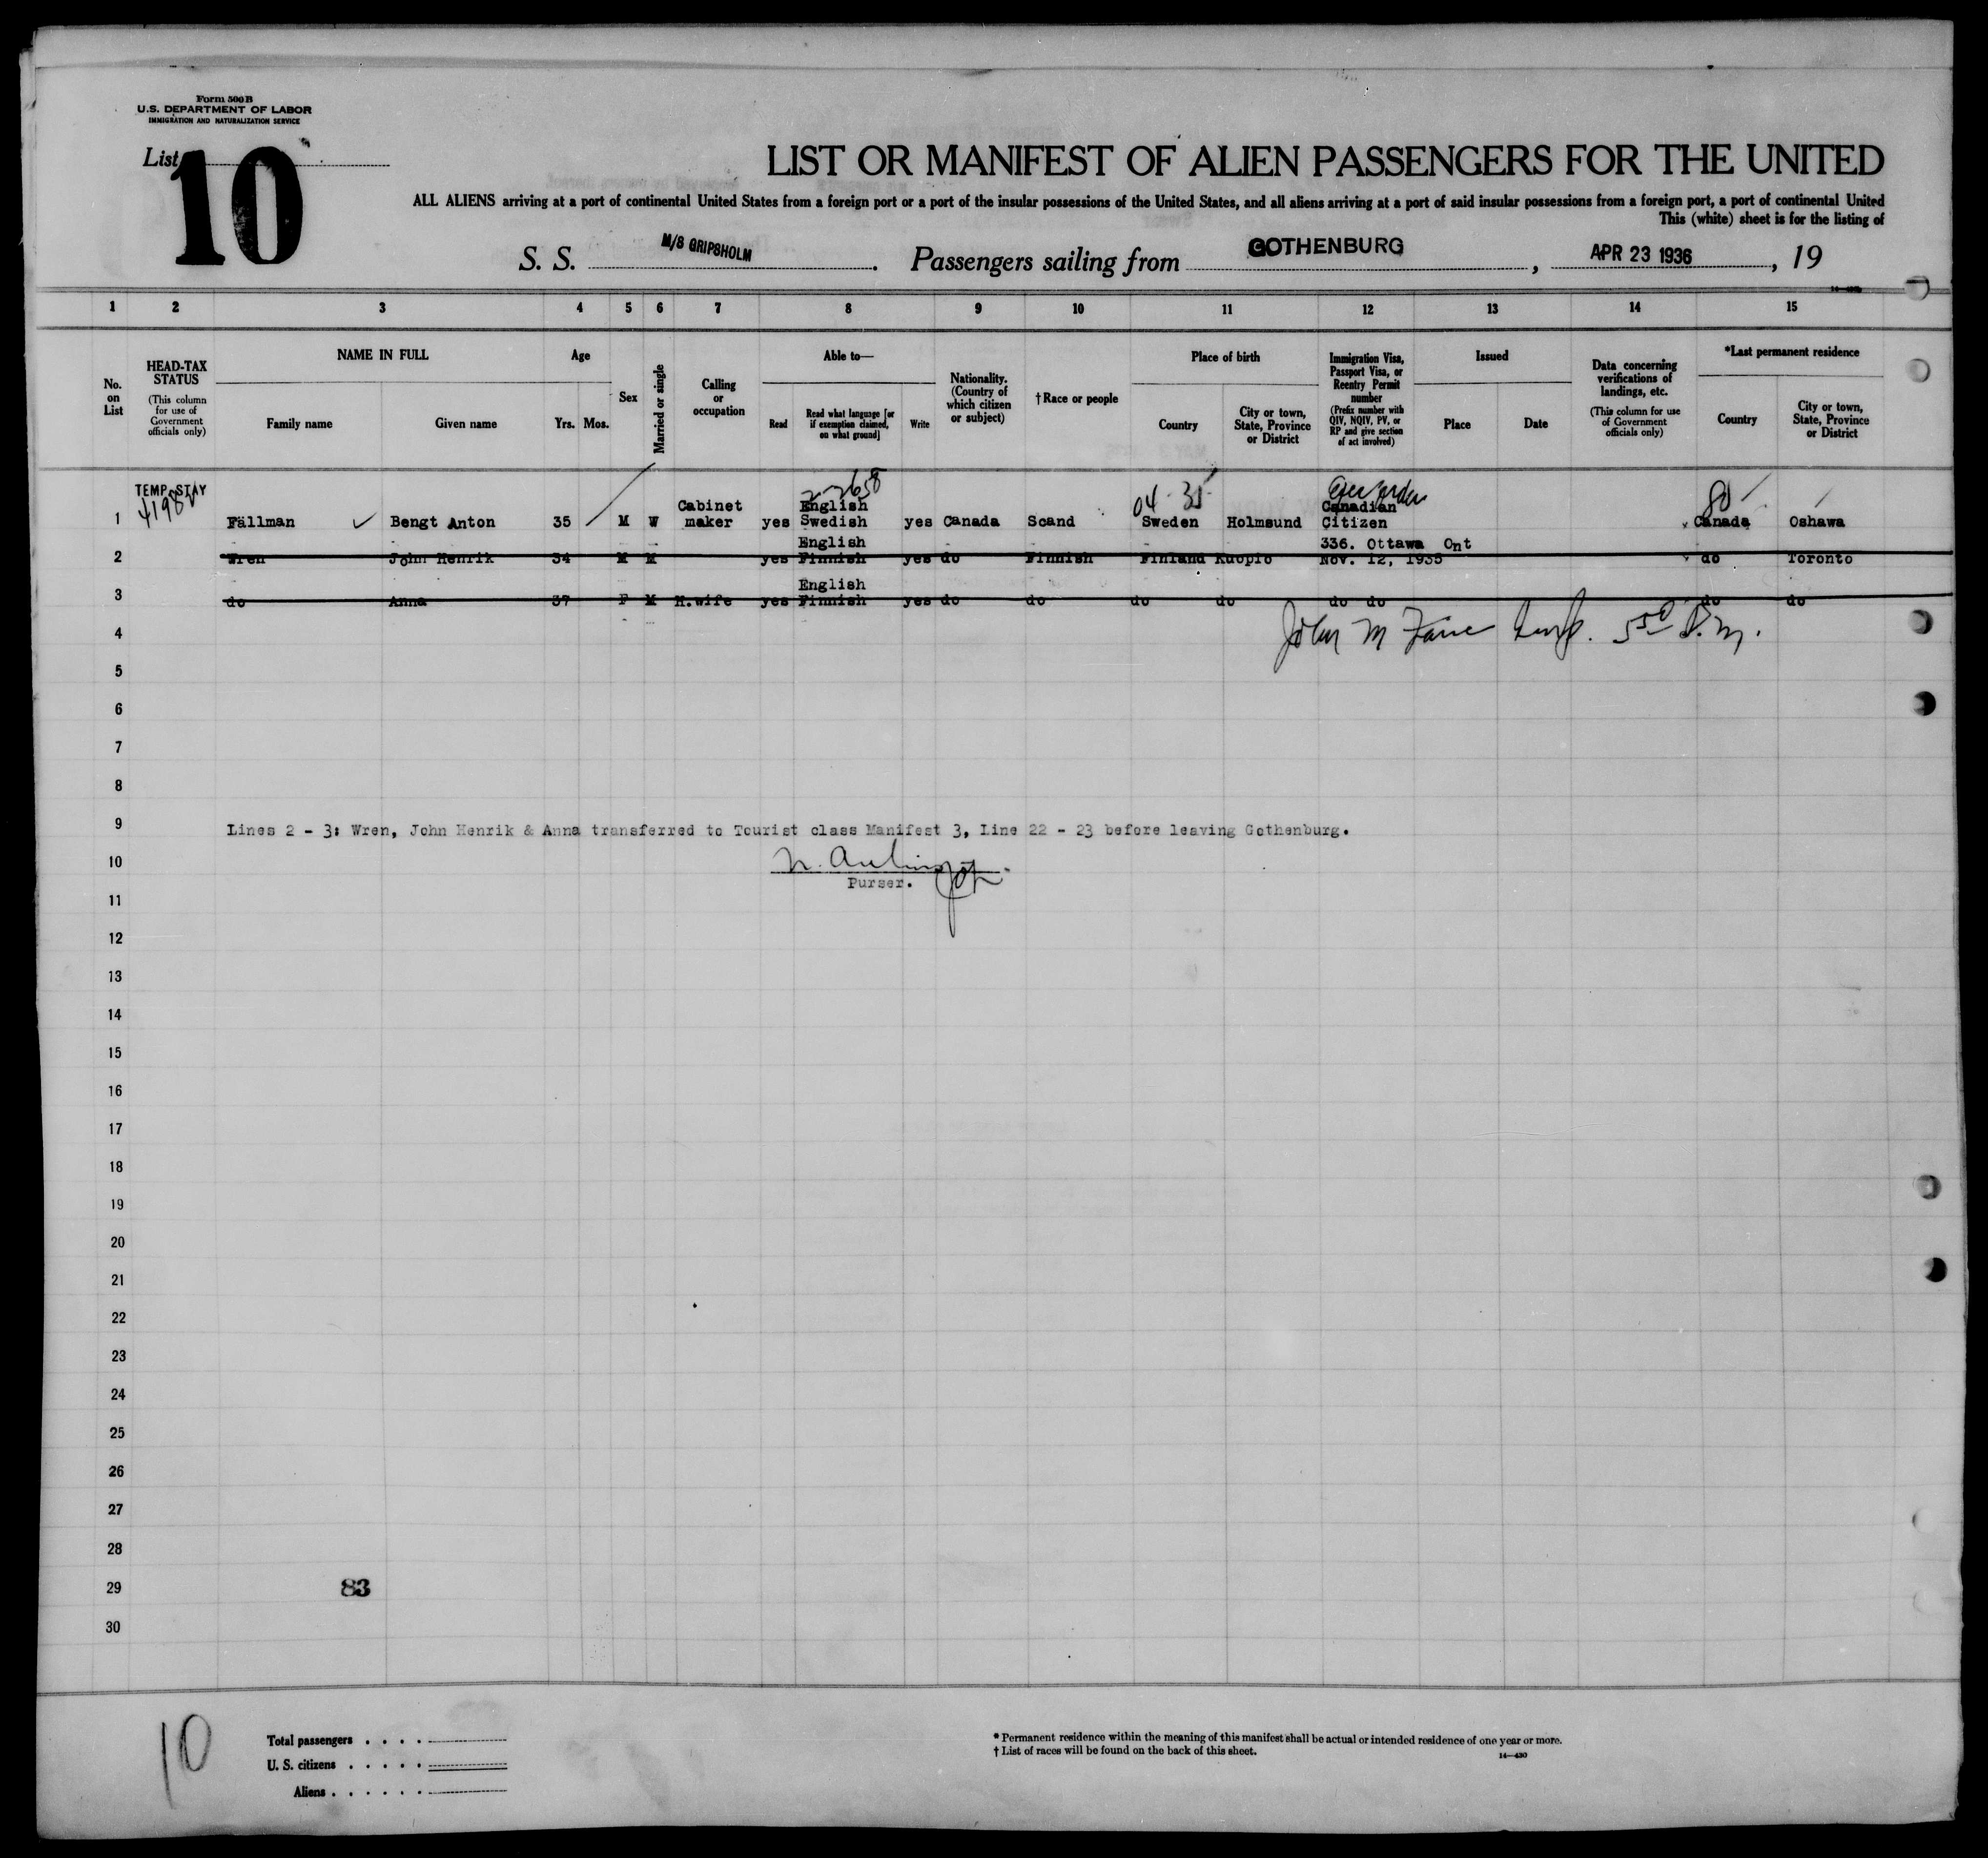 Form 500 B
U.S. DEPARTMENT OF LABOR
IMMIGRATION AND NATURALIZATION SERVICE
List
10
LIST OR MANIFEST OF ALIEN PASSENGERS FOR THE UNITED
ALL ALIENS arriving at a port of continental United States from a foreign port or a port of the insular possessions of the United States, and all aliens arriving at a port of said insular possessions from a foreign port, a port of continental United
This (white) sheet is for the listing of
S. S. M/S GRIPSHOLM. Passengers sailing from GOTHENBURG, APR 23 1936, 19
1 2 3 4 5 6 7 8 9 10 11 12 13 14 15
No. on List
HEAD-TAX STATUS (This column for use of Government officials only)
NAME IN FULL
Family name Given name
Age
Yrs. Mos.
Sex
Married or single
Calling or occupation
Able to—
Read Read what language [or if exemption claimed, on what ground] Write
Nationality. (Country of which citizen or subject)
† Race or people
Place of birth
Country City or town, State, Province or District
Immigration Visa, Passport Visa, or Reentry Permit number (Prefix number with QIV, NQIV, PV, or RP and give section of act involved)
Issued
Place Date
Data concerning verifications of landings, etc. (This column for use of Government officials only)
*Last permanent residence
Country City or town, State, Province or District
TEMP. STAY
2-2658
04 - 35
80
1 Fällman Bengt Anton 35 M W Cabinet maker yes English Swedish yes Canada Scand Sweden Holmsund Canadian Citizen Canada Oshawa
2 Wren John Henrik 34 M M yes English Finnish yes do Finnish Finland Kuopio 336. Ottawa Ont Nov. 12, 1935 do Toronto
3 do Anna 37 F M H.wife yes English Finnish yes do do do do do do do do
John M
P.M.
4
5
6
7
8
9 Lines 2 - 3: Wren, John Henrik & Anna transferred to Tourist class Manifest 3, Line 22 - 23 before leaving Gothenburg.
10
Purser.
11
12
13
14
15
16
17
18
19
20
21
22
23
24
25
26
27
28
29 83
30
10
Total passengers . . . .
U. S. citizens . . . . .
Aliens . . . . . .
* Permanent residence within the meaning of this manifest shall be actual or intended residence of one year or more.
† List of races will be found on the back of this sheet.
14—430